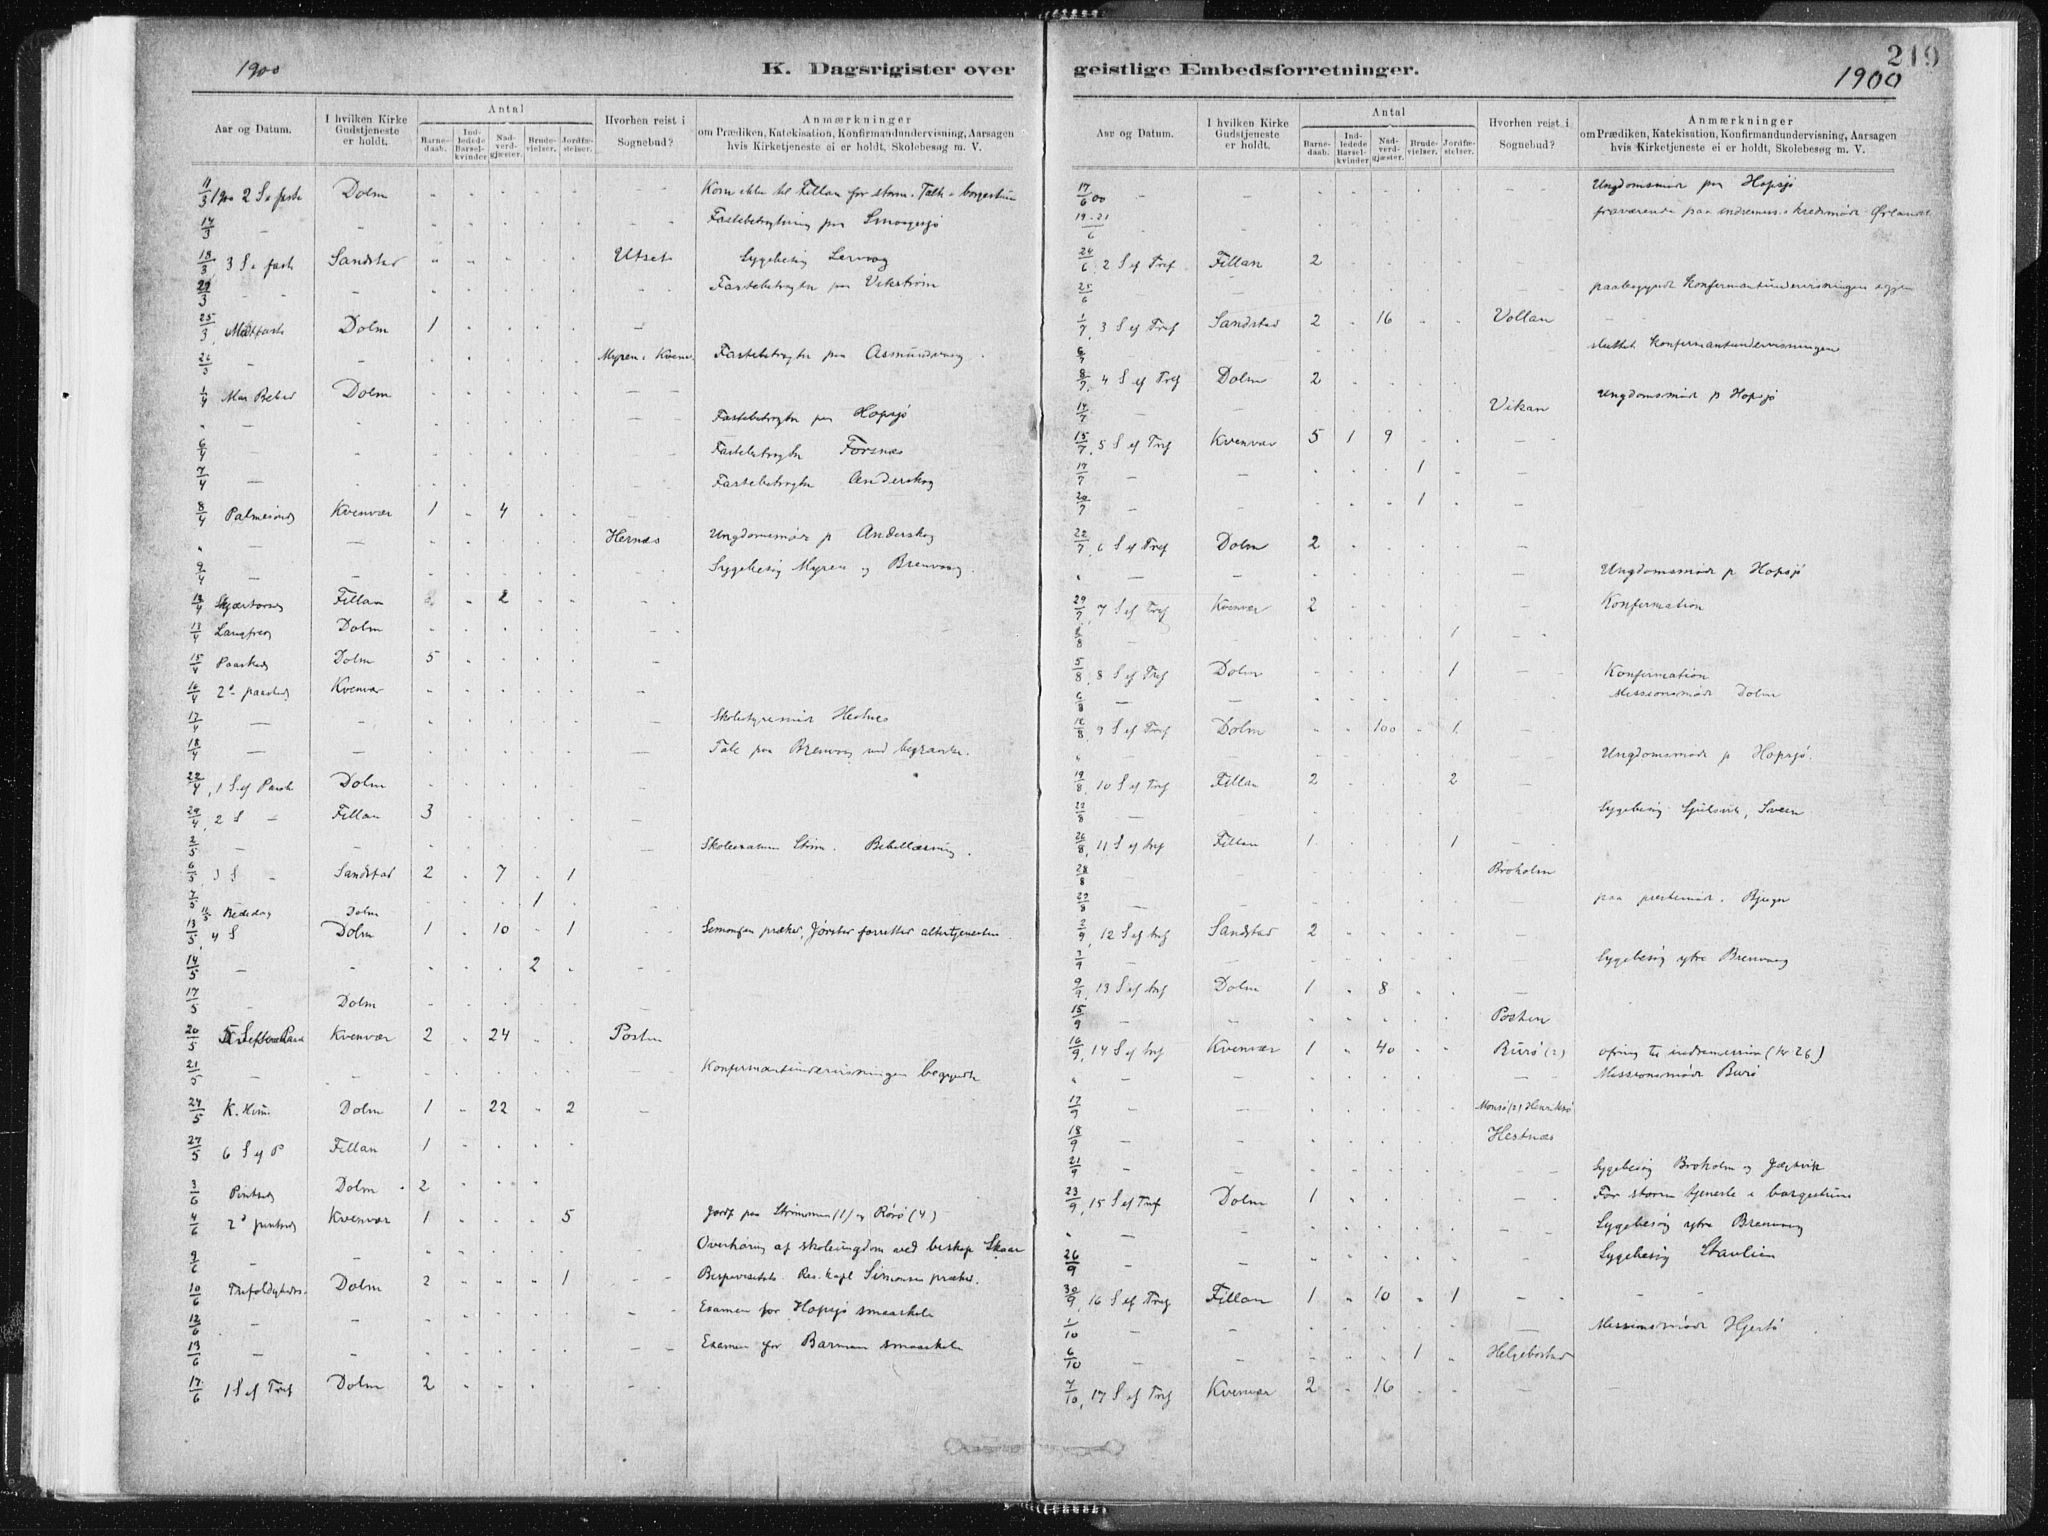 1900
K. Dagsrigister over
Antal
Aar og Datum.
I hvilken Kirke Gudstjeneste er holdt.
Barne-daab.
Ind-ledede Barsel-kvinder
Nad-verd-gjæster.
Brude-vielser.
Jordfæ-stelser.
Hvorhen reist i Sognebud?
Anmærkninger om Prædiken, Katekisation, Konfirmandundervisning, Aarsagen hvis Kirketjeneste ei er holdt, Skolebesøg m. V.
11/3 1900 2 S i faste Dolm Kom ikke til Fillan for storm.
14/3 Fastebetragtning paa
18/3 3 S i faste Sandstad Utset Sygebesøg
Fastebetragtn paa Vikstrøm
25/3 Dolm 1
26/3 Myren i Kvenv Fastebetragtn paa Asmundvaag
1/4 Mar Bebud Dolm
Fastebetragtn paa Hopsjø
6/4 Fastebetragtn Forsnæs
7/4 Fastebetragtn Anderskog
8/4 Palmesønd Kvenvær 1 4
Hernæs Ungdomsmøde p Anderskog
9/4 Sygebesøg Myren og Brenvaag
12/4 Skjærtorsd Fillan 2
13/4 Langfred Dolm
15/4 Paasked Dolm 5
16/4 2d paasked Kvenvær
17/4 Hestnes
18/4 Tale paa Brenvaag ved begravelse.
22/4, 1 S ef Paask Dolm
29/4, 2 S Fillan 3
2/5 Skoleexamen Strøm.
6/5, 3 S Sandstad 2 7 1
7/5 1
11/5 Bededag Dolm
13/5, 4 S Dolm 1 10 1 præker, forretter altertjenesten
14/5 2
17/5 Dolm
20/5 Kvenvær 2 24
21/5 Konfirmantundervisningen begyndt
24/5 K. Him. Dolm 1 22 2
27/5 6 S ef P Fillan 1
3/6 Pintsed Dolm 2
4/6 2d pintsed Kvenvær 1 5 Jordf paa Strømmen (1) og Rørø (4)
9/6 Overhøring af skoleungdom ved biskop Skaar
10/6 Trefoldigheds Dolm 2 1 Bispevisitats. Res. kapl Simonsen præker.
12/6 Examen for Hopsjø smaaskole
13/6 Examen for Barman smaaskole
17/6 1 S ef Tref Dolm 2
219
geistlige Embedsforretninger.
1900
Antal
Aar og Datum.
I hvilken Kirke Gudstjeneste er holdt.
Barne-daab.
Ind-ledede Barsel-kvinder
Nad-verd-gjæster.
Brude-vielser.
Jordfæ-stelser.
Hvorhen reist i Sognebud?
Anmærkninger om Prædiken, Katekisation, Konfirmandundervisning, Aarsagen hvis Kirketjeneste ei er holdt, Skolebesøg m. V.
17/6 00 Ungdomsmøde paa Hopsjø
19-21/6 fraværende paa indremiss. kredsmøde Ørlandet
24/6, 2 S ef Tref Fillan 2
25/6 paabegyndt Konfirmantundervisningen
1/7, 3 S ef Tref Sandstad 2 16 Vollan
6/7 sluttet Konfirmantundervisningen
8/7, 4 S ef Tref Dolm 2
14/7 Vikan Ungdomsmøde p Hopsjø
15/7, 5 S ef Tref Kvenvær 5 1 9
17/7 1
20/7 1
22/7, 6 S ef Tref Dolm 2
Ungdomsmøde p Hopsjø
29/7, 7 S ef Tref Kvenvær 2 Konfirmation
1
5/8, 8 S ef Tref Dolm 1 Konfirmation
6/8 Missionsmøde Dolm
12/8, 9 S ef Tref Dolm 100 1
Ungdomsmøde p Hopsjø.
19/8, 10 S ef Tref Fillan 2 2
22/8 Sygebesøg
26/8, 11 S ef tref Fillan 1 1
28/8 Broholm
29/8 paa prestemøde. Bjugn
2/9, 12 S ef tref Sandstad 2
3/9 Sygebesøg ytre Brenvaag
9/9, 13 S ef tref Dolm 1 8
15/9 Posten
16/9, 14 S ef tref Kvenvær 1 40 Burø (2) ofring til indremission (kr 26)
Missionsmøde Burø
17/9 Monsø (2) Henriksø
18/9 Hestnæs
21/9 Sygebesøg Broholm og Jægtvik
23/9, 15 S ef Tref Dolm 1 For storm tjeneste i borgestuen
Sygebesøg ytre Brenvaag
26/9 Sygebesøg Stavlien
30/9, 16 S ef Tref Fillan 1 10 1
1/10 Missionsmøde Hjertø
6/10 1 Helgebostad
7/10, 17 S ef Tref Kvenvær 2 16